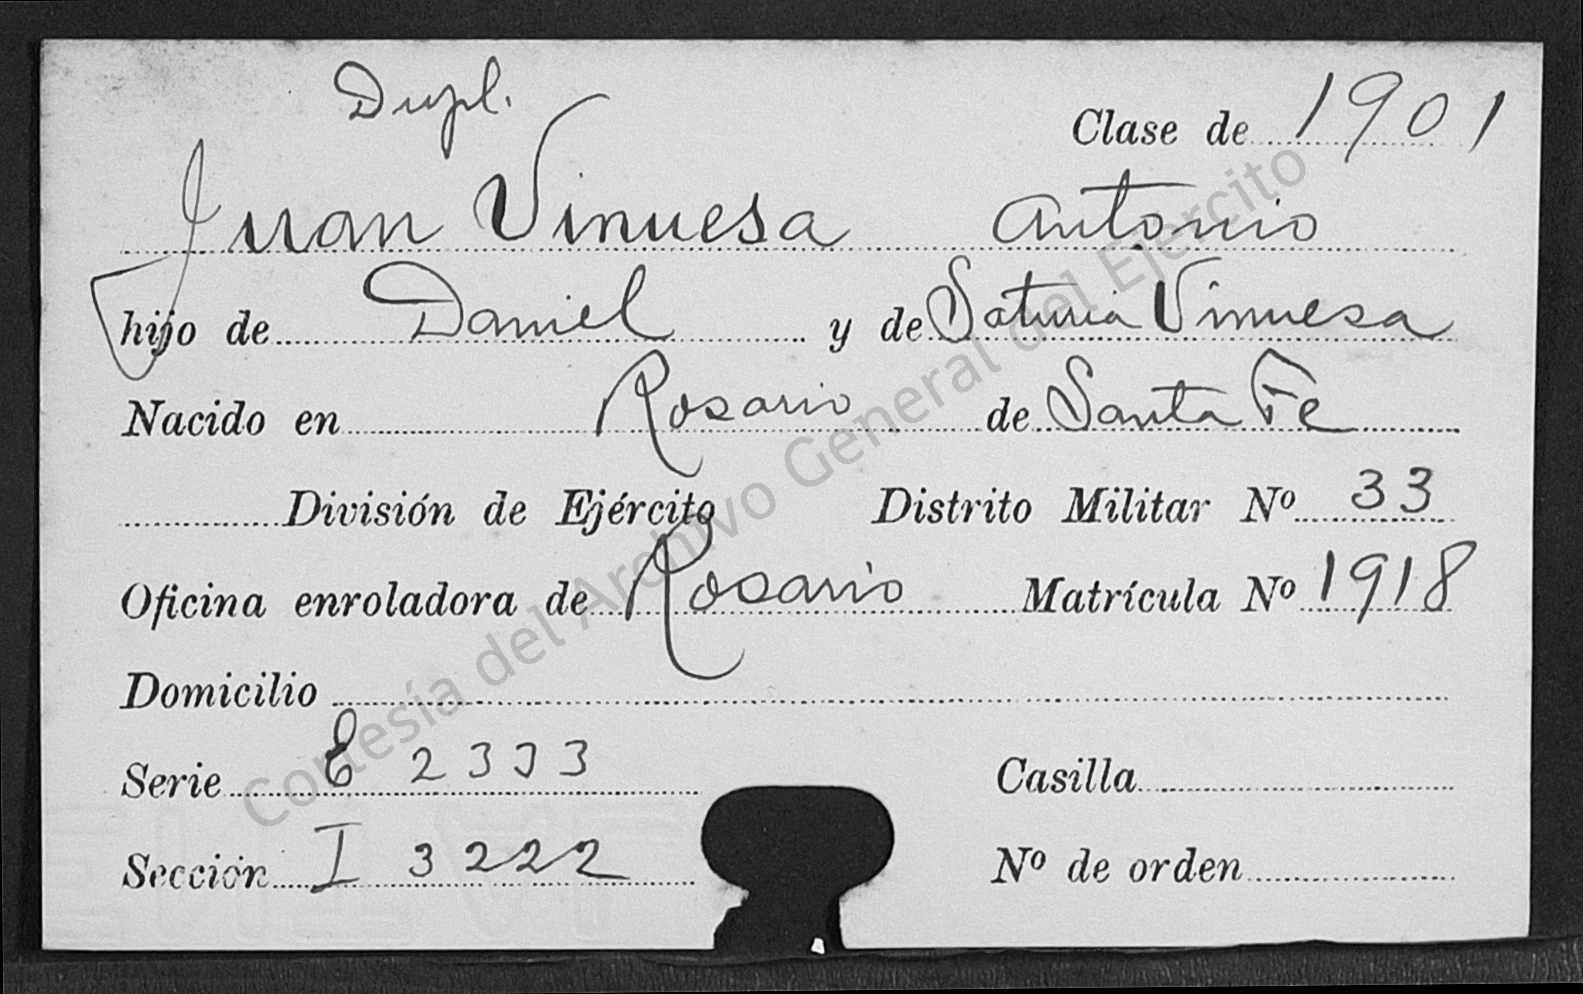 Dupl.
Clase de 1901
Juan Vinuesa Antonio
hijo de Daniel y de Saturia Vinuesa
Nacido en Rosario de Santa Fe
División de Ejército Distrito Militar Nº 33
Oficina enroladora de Rosario Matrícula Nº 1918
Domicilio
Serie E 2333 Casilla
Sección I 3222 Nº de orden
Cortesía del Archivo General del Ejército